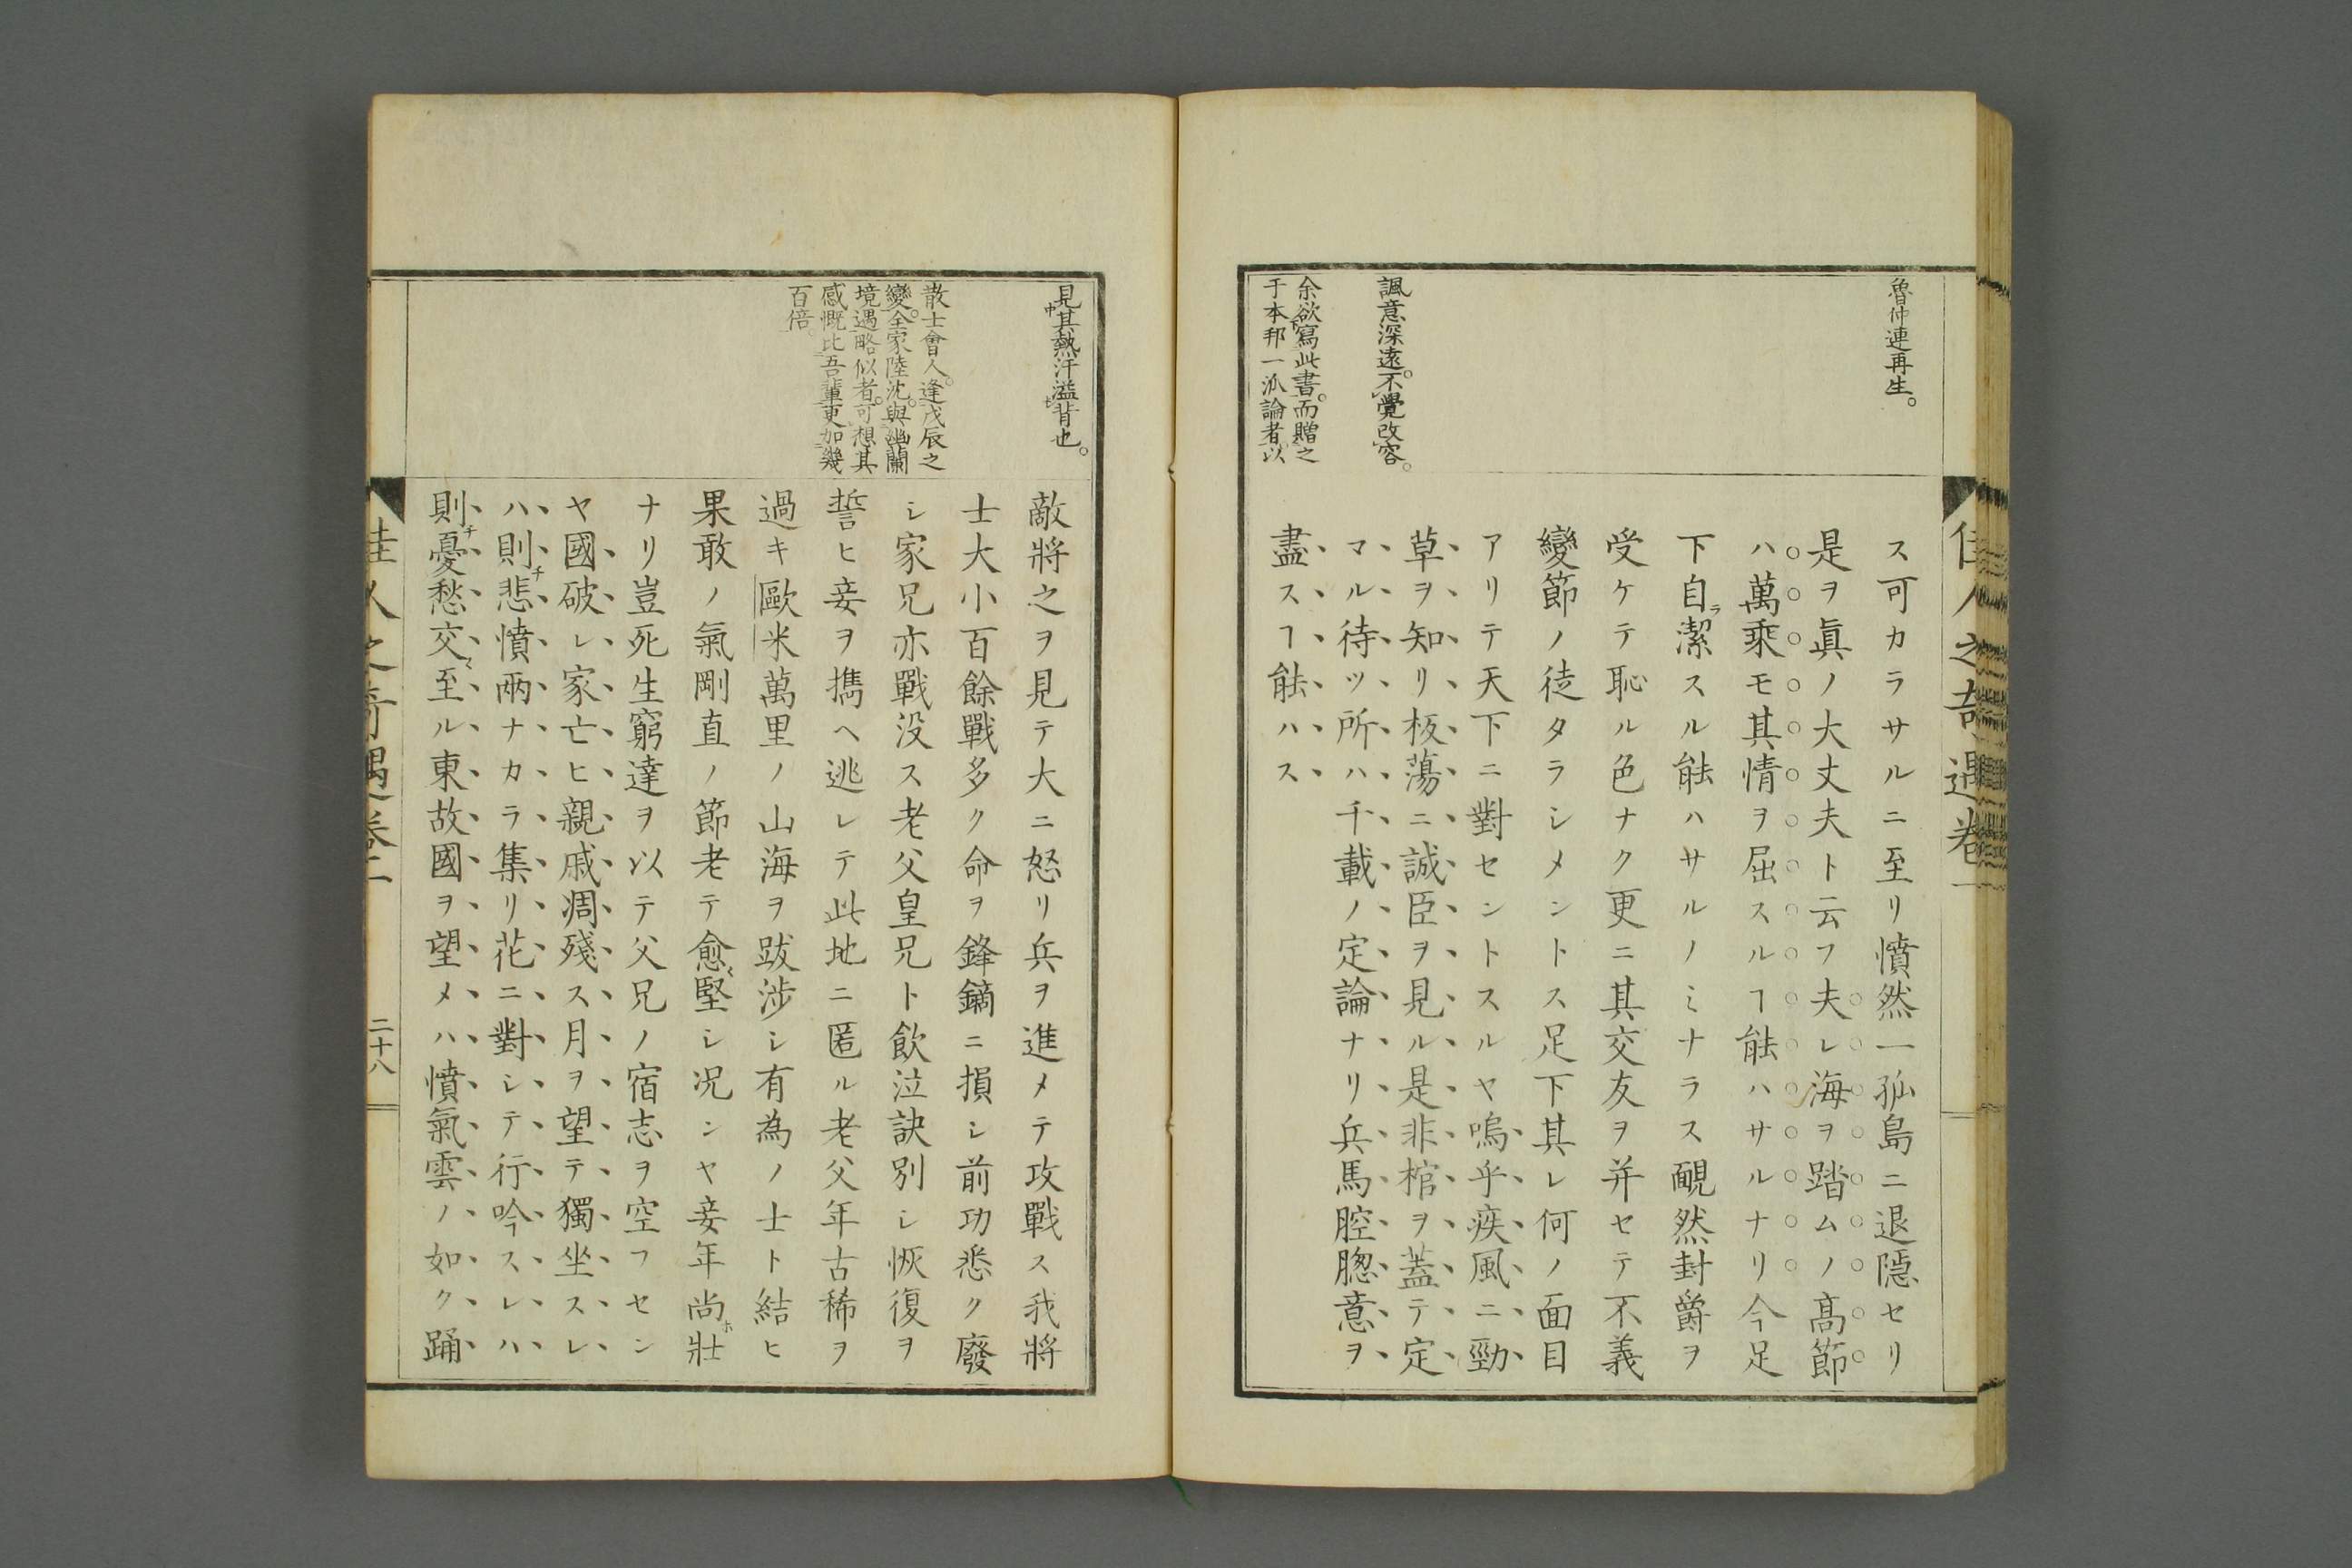 佳人之奇遇卷一
魯仲連再生。
諷意深遠。不覺改容。
余欲寫此書。而贈之
于本邦一派論者。以
ス可カラサルニ至リ憤然一孤島ニ退隱セリ
是ヲ眞ノ大丈夫ト云フ夫レ海ヲ踏ムノ髙節
ハ萬乘モ其情ヲ屈スルヿ能ハサルナリ今足
下自ラ潔スル能ハサルノミナラス靦然封爵ヲ
受ケテ恥ル色ナク更ニ其交友ヲ并セテ不義
變節ノ徒タラシメントス足下其レ何ノ面目
アリテ天下ニ對セントスルヤ嗚乎疾風ニ勁
草ヲ知リ板蕩ニ誠臣ヲ見ル是非棺ヲ蓋テ定
マル待ツ所ハ千載ノ定論ナリ兵馬腔腮意ヲ
盡スヿ能ハス
見其熱汗溢背也。
散士會人。逢戊辰之
變。全家陸沈。與幽蘭
境遇略似者。可想其
感慨比吾輩更加幾
百倍。
敵將之ヲ見テ大ニ怒リ兵ヲ進メテ攻戰ス我將
士大小百餘戰多ク命ヲ鋒鏑ニ損シ前功悉ク廢
シ家兄亦戰没ス老父皇兄ト飲泣訣別シ恢復ヲ
誓ヒ妾ヲ携ヘ逃レテ此地ニ匿ル老父年古稀ヲ
過キ歐米萬里ノ山海ヲ跋渉シ有為ノ士ト結ヒ
果敢ノ氣剛直ノ節老テ愈〻堅シ况ンヤ妾年尚ホ壯
ナリ豈死生窮達ヲ以テ父兄ノ宿志ヲ空フセン
ヤ國破レ家亡ヒ親戚凋殘ス月ヲ望テ獨坐スレ
ハ則チ悲憤兩ナカラ集リ花ニ對シテ行吟スレハ
則チ憂愁交〻至ル東故國ヲ望メハ憤氣雲ノ如ク踊
佳人之奇遇卷二
二十八